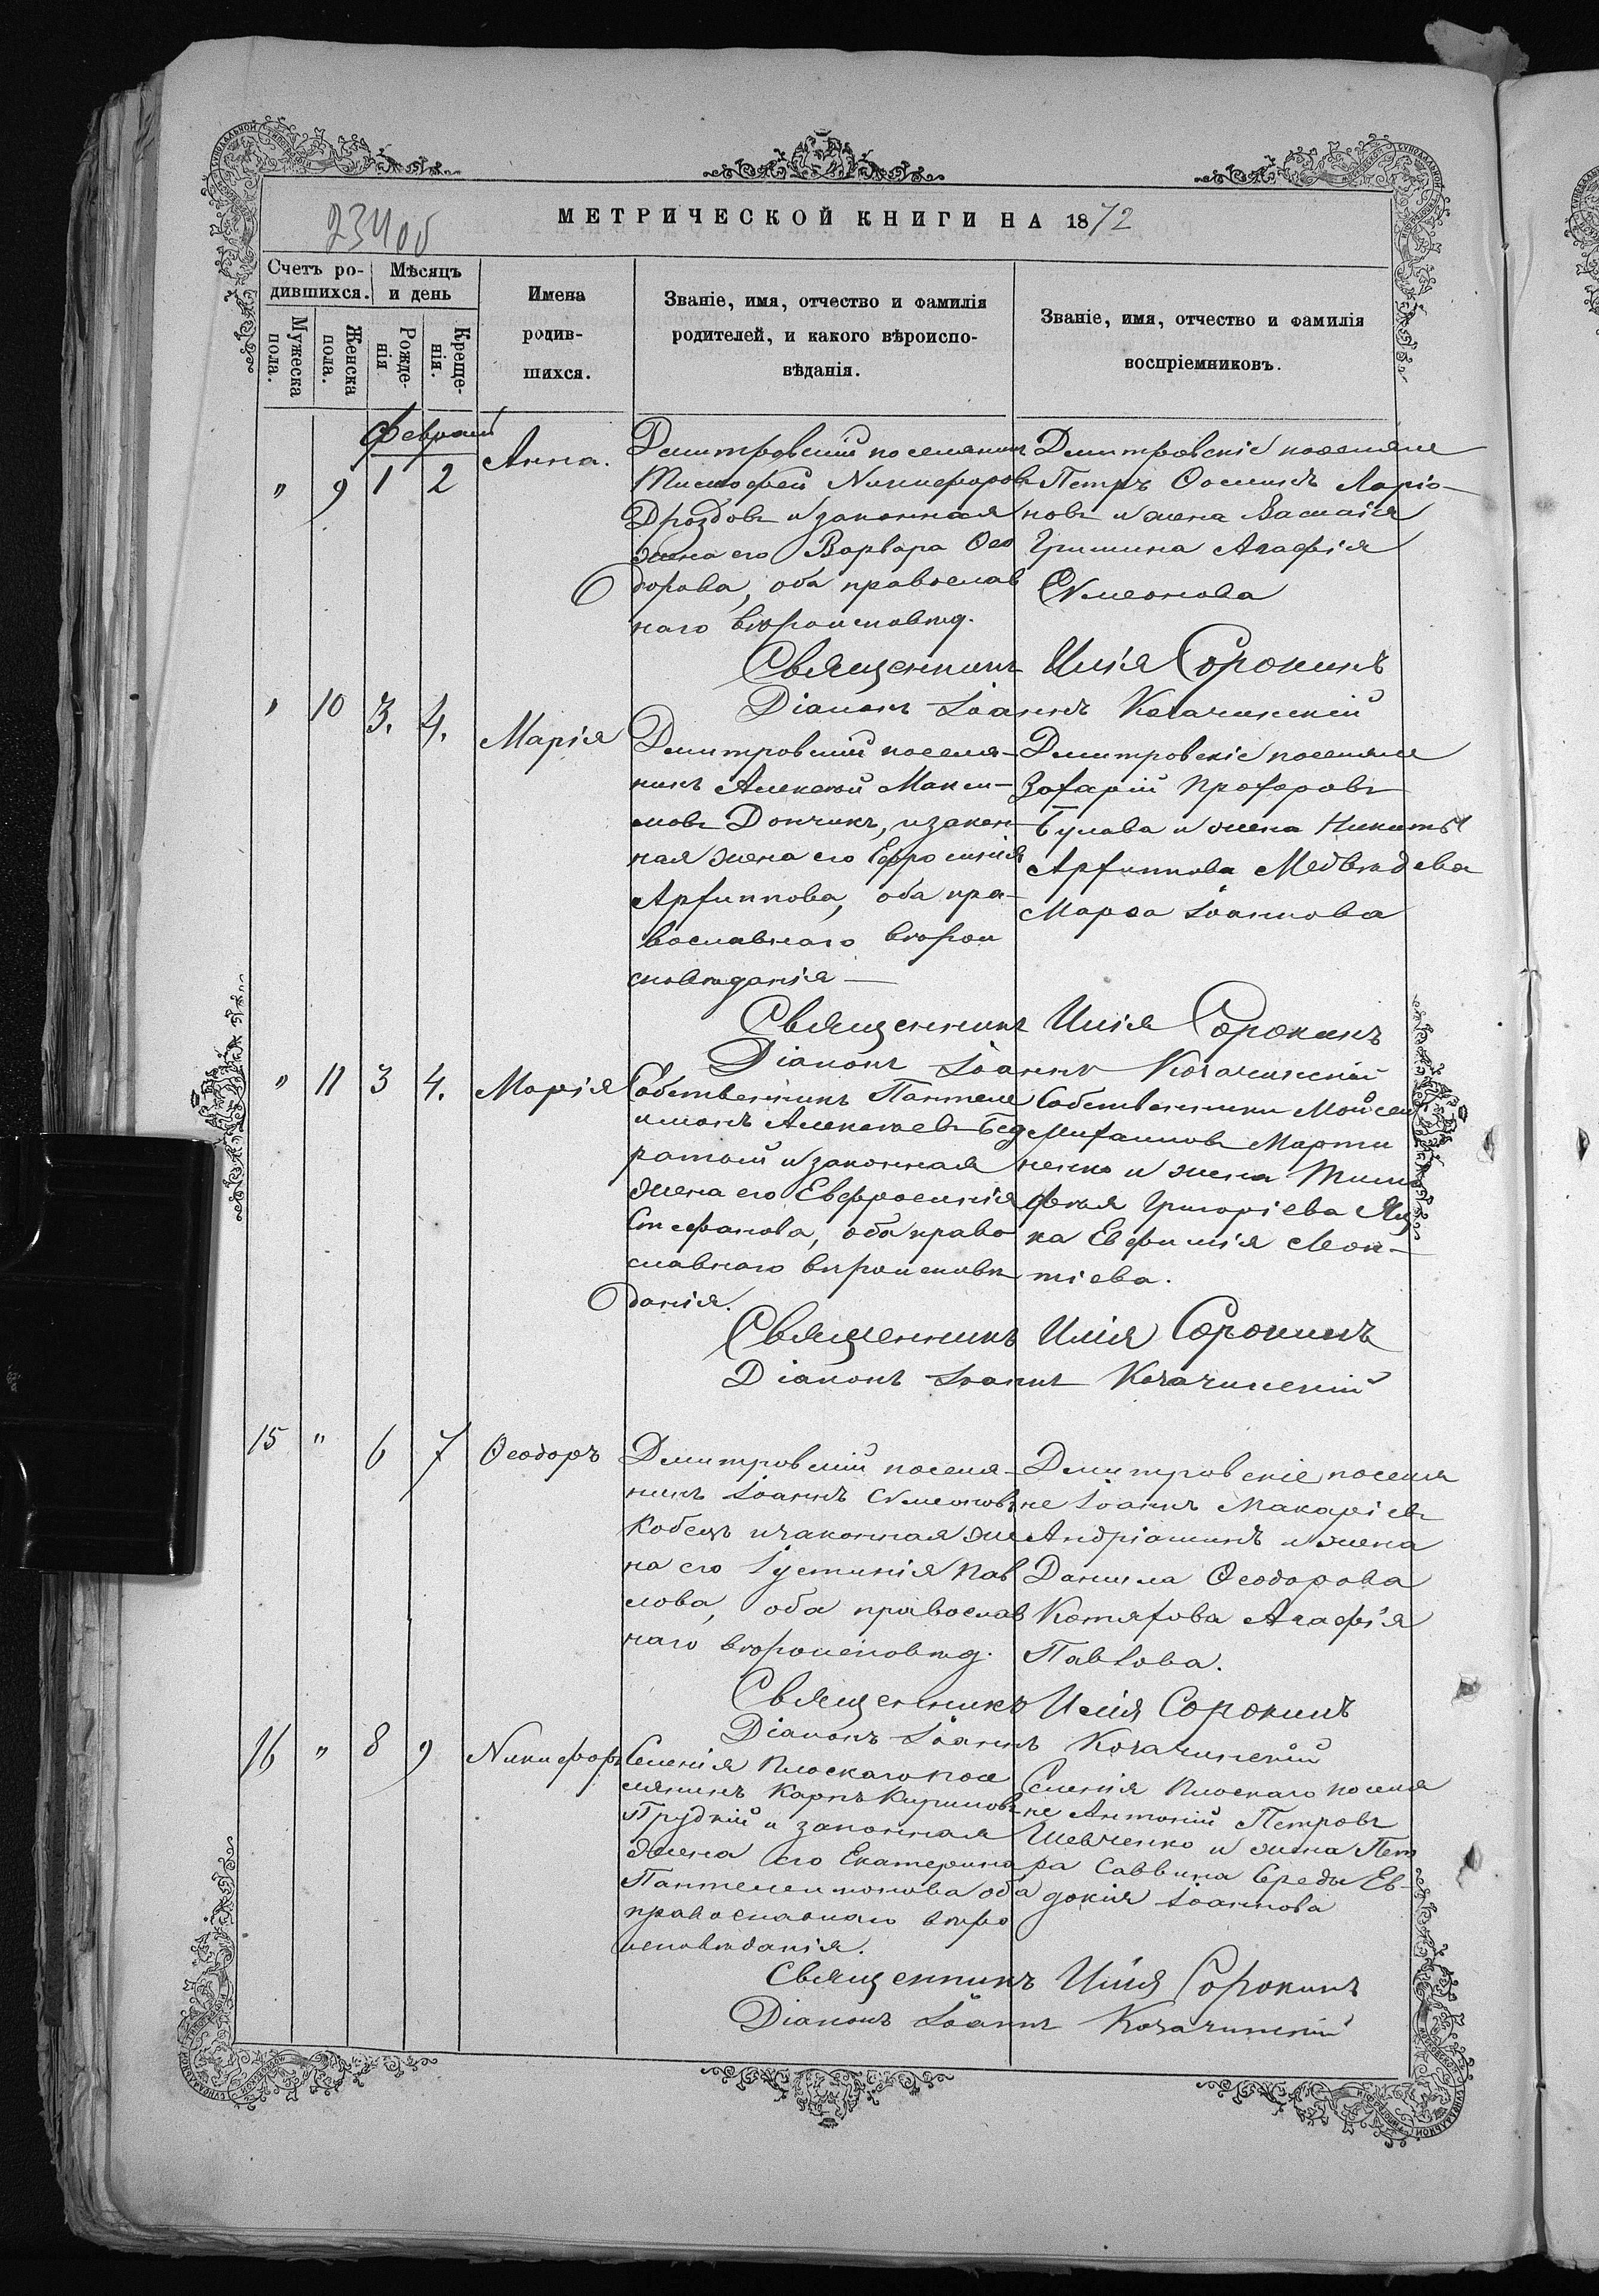 234 об
МЕТРИЧЕСКОЙ КНИГИ НА 1872
Счетъ ро-
дившихся.
Мѣсяцъ
и день
Мужеска
пола.
Женска
пола.
Рожде-
нія
Креще-
нія.
Имена
родив-
шихся.
Званіе, имя, отчество и фамилія
родителей, и какого вѣроиспо-
вѣданія.
Званіе, имя, отчество и фамилія
воспріемниковъ.
Февраль
" 9 1 2 Анна.
Дмитровскій поселянинъ
Тимофей Никифоровъ
Дроздовъ и законная
жена его Варвара Ѳео
дорова, оба православ
наго вѣроисповѣд.
Дмитровскіе поселяне
Петръ Ѳоминъ Ларіо-
новъ и жена Василія
Гришина Агафія
Сѵмеонова
Священникъ Илія Сорокинъ
Діаконъ Іоаннъ
" 10 3. 4. Марія
Дмитровскій поселя-
нинъ Алексѣй Макси-
мовъ Дончикъ, и закон-
ная жена его Ефросинія
Архиппова, оба пра-
вославнаго вѣрои
сповѣданія —
Дмитровскіе поселяне
Захарій Прохоровъ
Булава и жена Никиты
Архиппова Медвѣдева
Марѳа Іоаннова
Священникъ Илія Сорокинъ
Діаконъ Іоаннъ
" 11 3 4. Марія
Собственникъ Пантеле
имонъ Алексѣевъ
и законная
жена его Евфросинія
Стефанова, оба право
славнаго вѣроисповѣ
данія.
Собственники Моисей
Михаиловъ Марти
ненко и жена Тимо
фея Григоріева
Евфимія Леон-
тіева.
Священникъ Илія Сорокинъ
Діаконъ Іоаннъ
15 " 6 7 Ѳеодоръ
Дмитровскій поселя-
нинъ Іоаннъ Сѵмеоновъ
Кобецъ и законная же
на его Іустинія Пав
лова, оба православ
наго вѣроисповѣд.
Дмитровскіе поселя
не Іоаннъ Макаріевъ
Андріашинъ и жена
Данила Ѳеодорова
Агафія
Павлова.
Священникъ Илія Сорокинъ
Діаконъ Іоаннъ
16 " 8 9 Никифоръ
Селенія Плоскаго посе
лянинъ Карпъ Кириловъ
и законная
жена его Екатерина
Пантелеимонова оба
православнаго вѣро
исповѣданія.
Селенія Плоскаго поселя
не Антоній Петровъ
Шевченко и жена Пет
ра Саввина Середы Ев-
докія Іоаннова
Священникъ Илія Сорокинъ
Діаконъ Іоаннъ